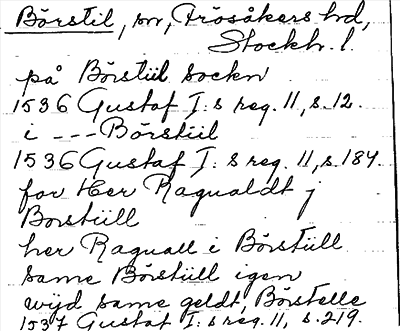 Börstil, sn, Frösåkers hd,
Stockh. l.
på Börstiil sockn
1536 Gustaf I:s reg. 11, s. 12.
i --- Börstiil
1536 Gustaf I:s reg. 11, s. 184.
for Her Ragualdt j
Borstüll
her Raguall i Börstüll
same Börstüll igen
wijd same geldt, Börstelle
1537 Gustaf I:s reg. 11, s. 219.